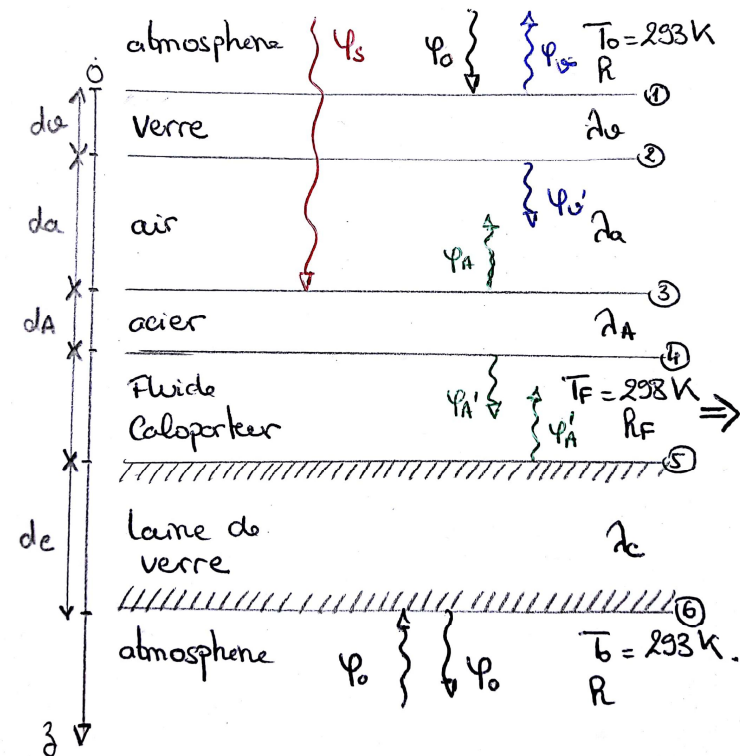 atmosphere φs φo φv To = 293K
R
O
①
dv Verre λv
②
da air φv' λa
φA
③
dA acier λA
④
Fluide φA' TF = 298 K ⇒
Caloporteur φA' RF
⑤
de laine de λc
verre
⑥
atmosphere φo φo To = 293K.
R
z